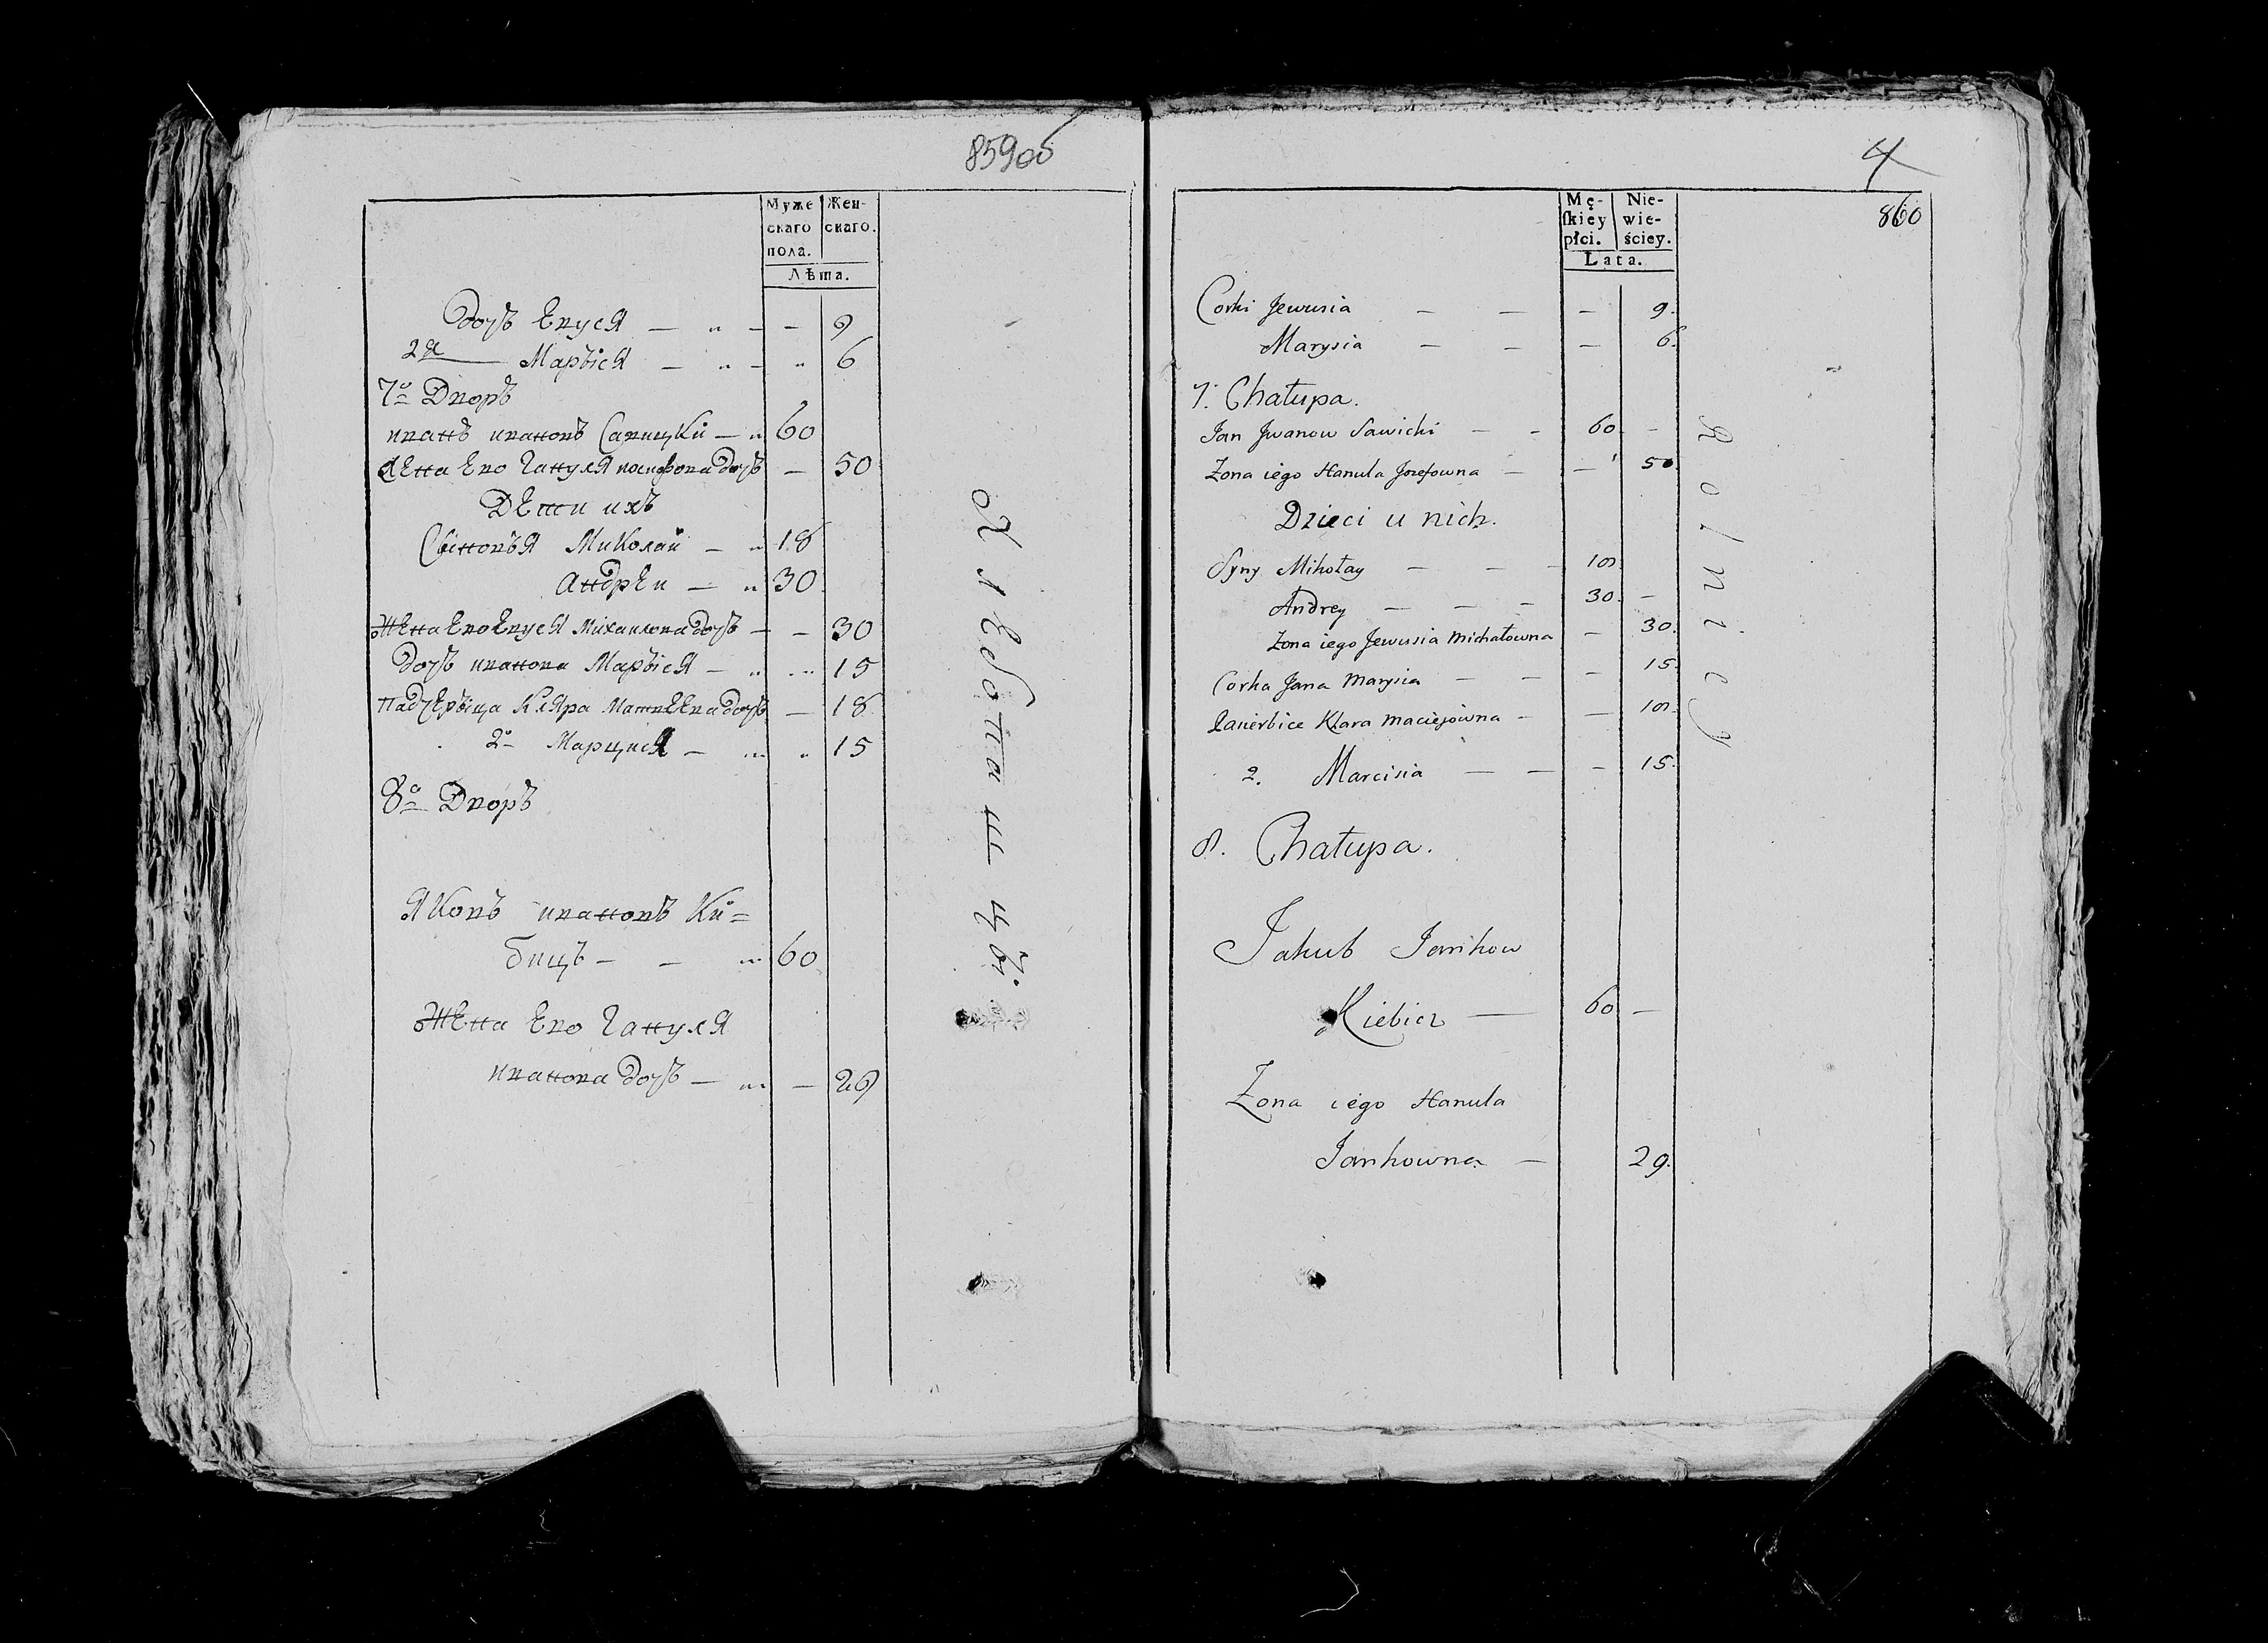 859об
Муже
скаго
пола.
Жен-
скаго.
Лѣта.
дочь Евуся — „ — — 9
2я — Марыся — „ — „ 6
7о Дворъ
иванъ ивановъ Савицки — „ 60
жена Ево Гануля иосифова дочь — 50
ДЕти ихъ
Сыновья Миколай — „ 18
андрЕи — „ 30
жЕна Ево Евуся Михаилова дочь — — 30
дочь иванова Марыся — „ „ 15
падчЕрыца Кляра МатвЕЕва дочь — 18
2о Марцися — „ „ 15
8о Дворъ
Яковъ ивановъ Ки=
бицъ — — „ 60
жЕна Ево Гануля
иванова дочь — „ — 29
ХлЕбопашцы.
4
860
Mę-
ſkiey
płci.
Nie-
wie-
ściey.
Lata.
Corki Jewusia — — — 9.
Marysia — — — 6.
7. Chałupa.
Jan Jwanow Sawicki — — 60. —
Zona iego Hanula Jozefowna — — 50
Dzieci u nich.
Syny Mikołay — — — 18
Andrey — — — 30. —
Zona iego Jewusia Michałowna — 30.
Corka Jana Marysia — — — 15.
Klara Maciejowna — — 18.
2. Marcisia — — — 15.
8. Chałupa.
Jakub Jankow
Kiebicz — 60 —
Zona iego Hanula
Jankowna — 29.
Rolnicy